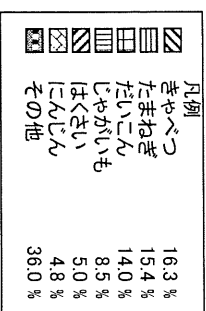 凡例
きゃべつ 16.3 %
たまねぎ 15.4 %
だいこん 14.0 %
じゃがいも 8.5 %
はくさい 5.0 %
にんじん 4.8 %
その他 36.0 %